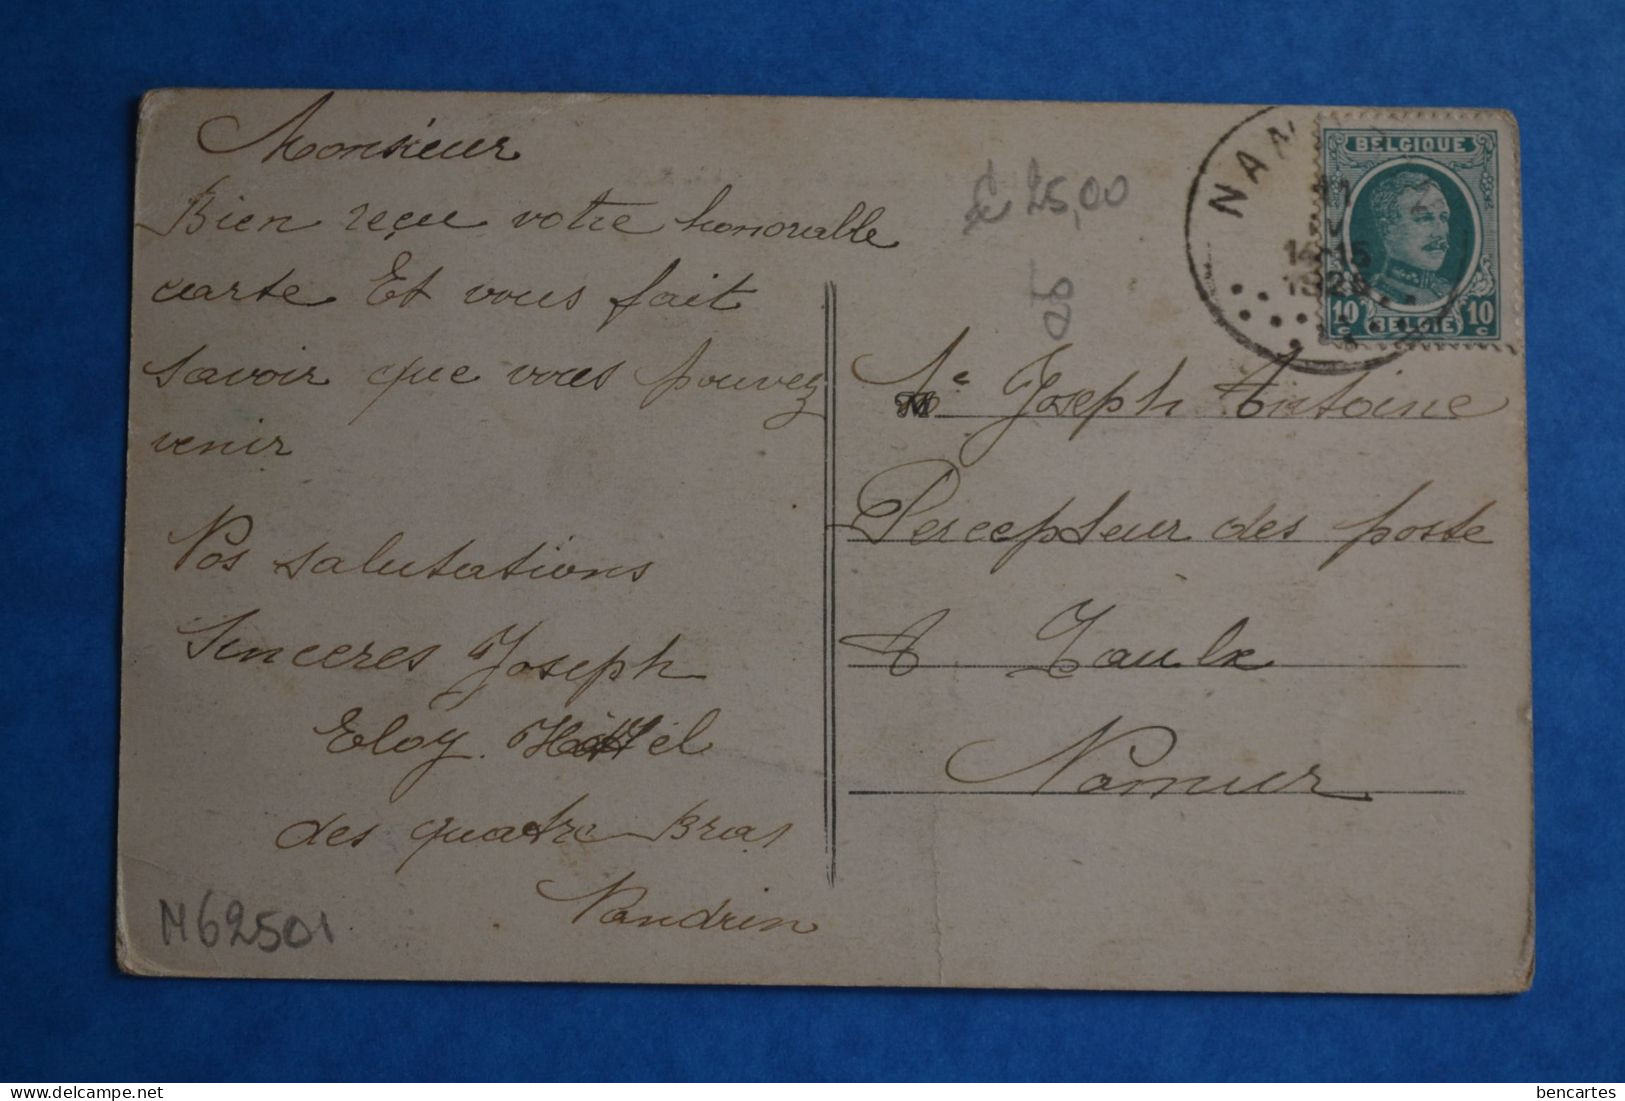 Monsieur
Bien reçu votre honorable
carte Et vous fait
savoir que vous pouvez
venir
Nos salutations
Sinceres Joseph
Eloy Hotel
des quatre Bras
Nandrin
M62501
€ 25,00
NAN
11
14-15
1926
BELGIQUE
10c BELGIE 10c
Mr Joseph Antoine
Percepteur des poste
A
Namur
bencartes